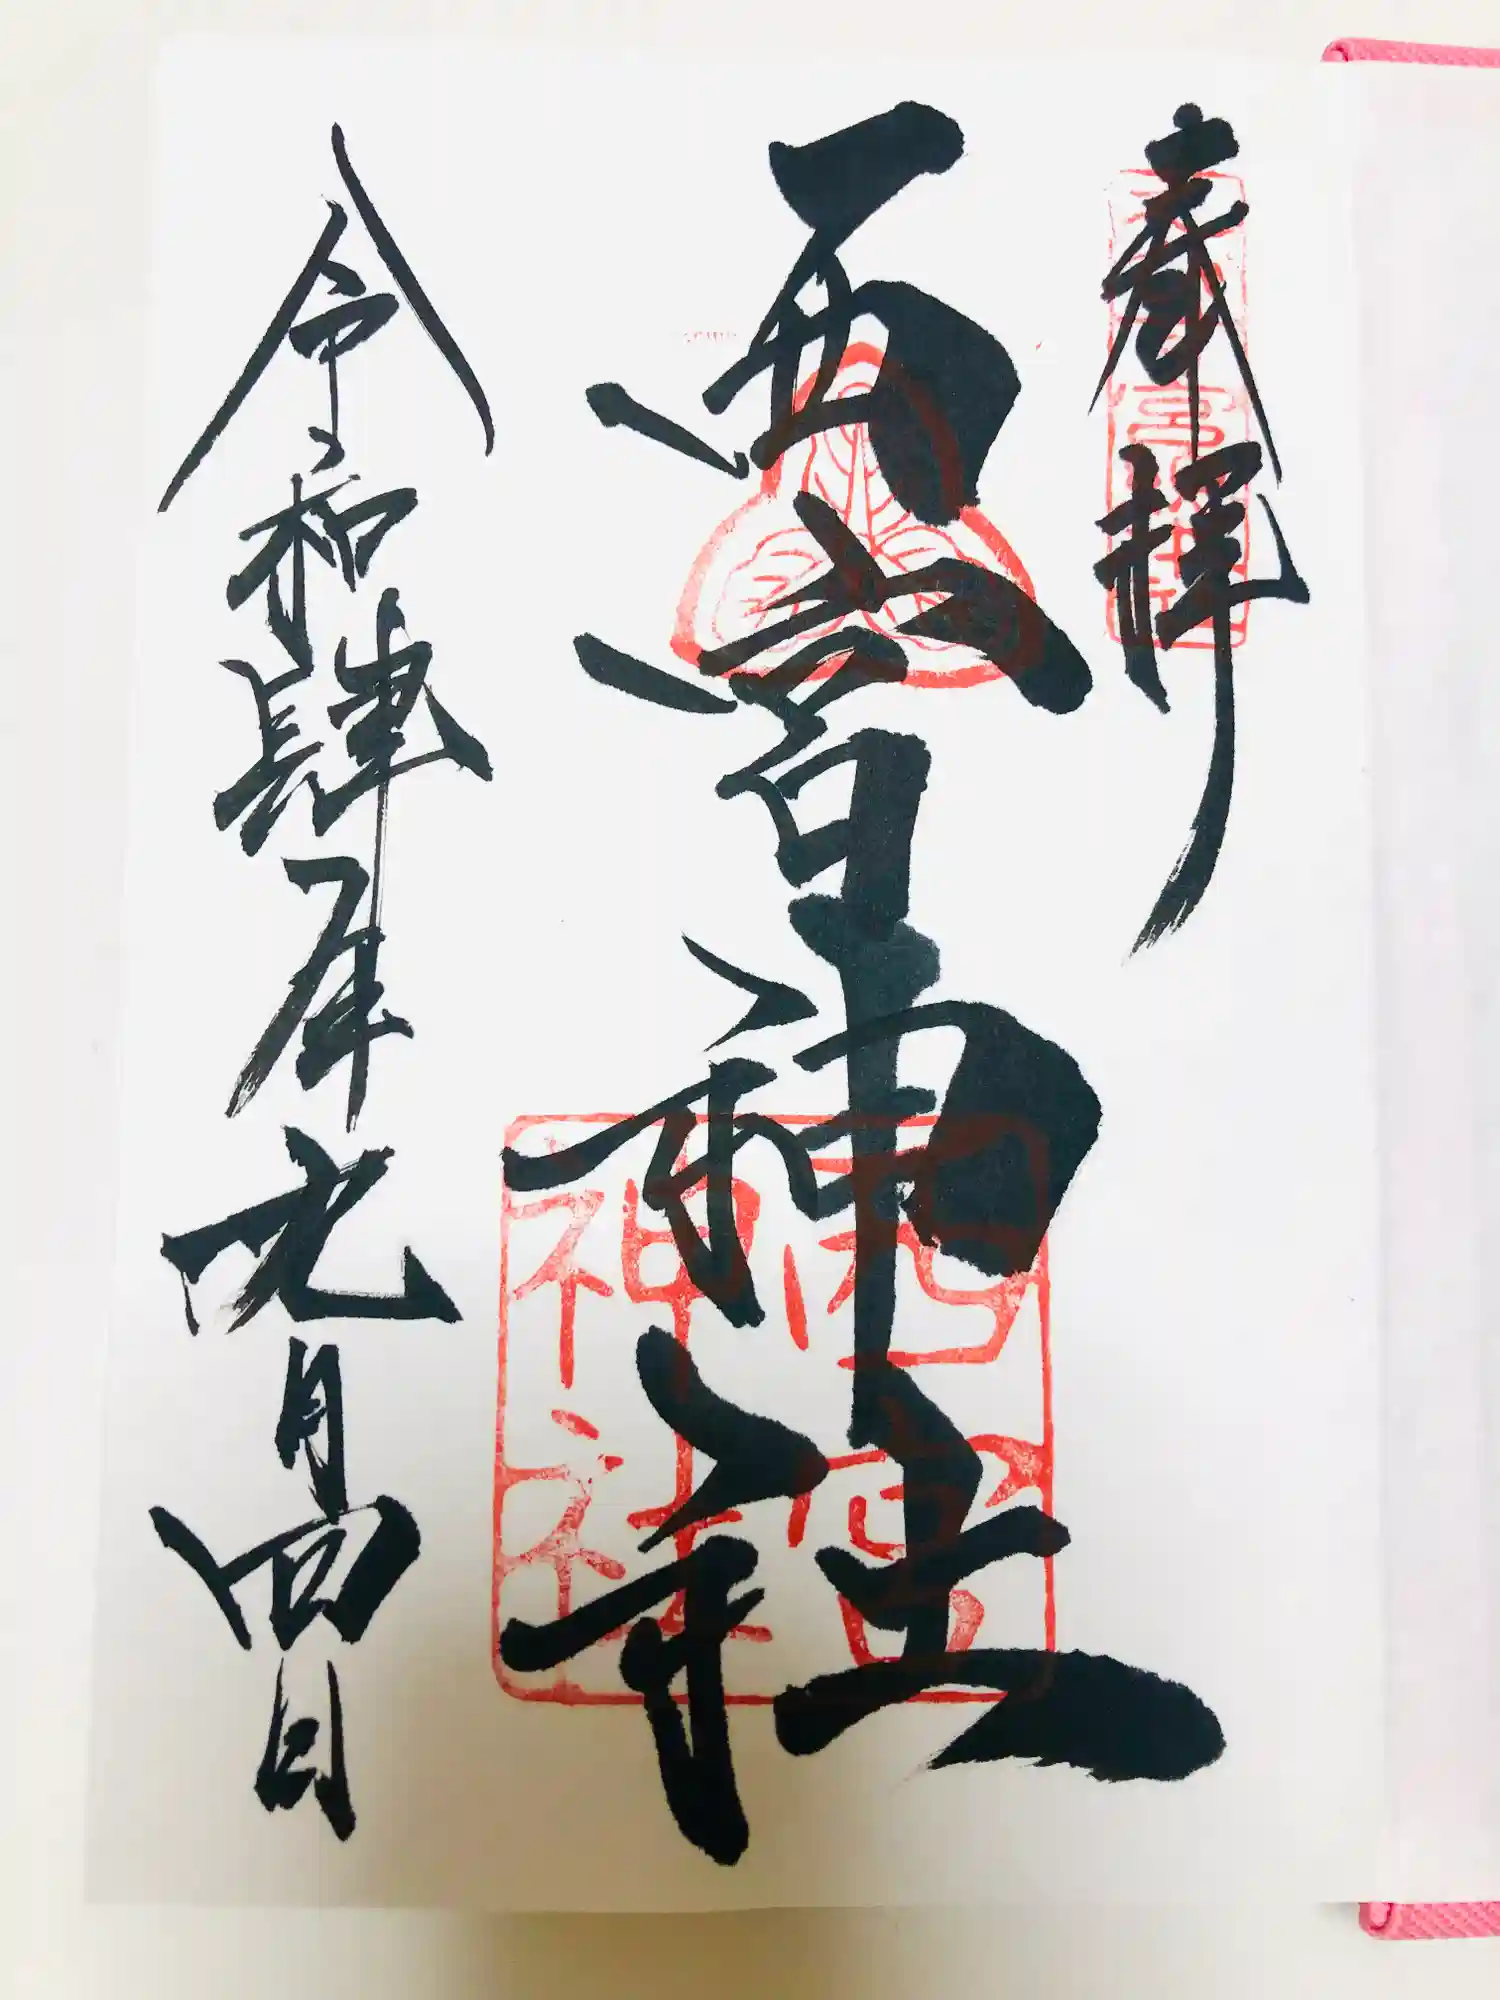 奉拝
西宮神社
西宮
神社
令和肆年九月四日